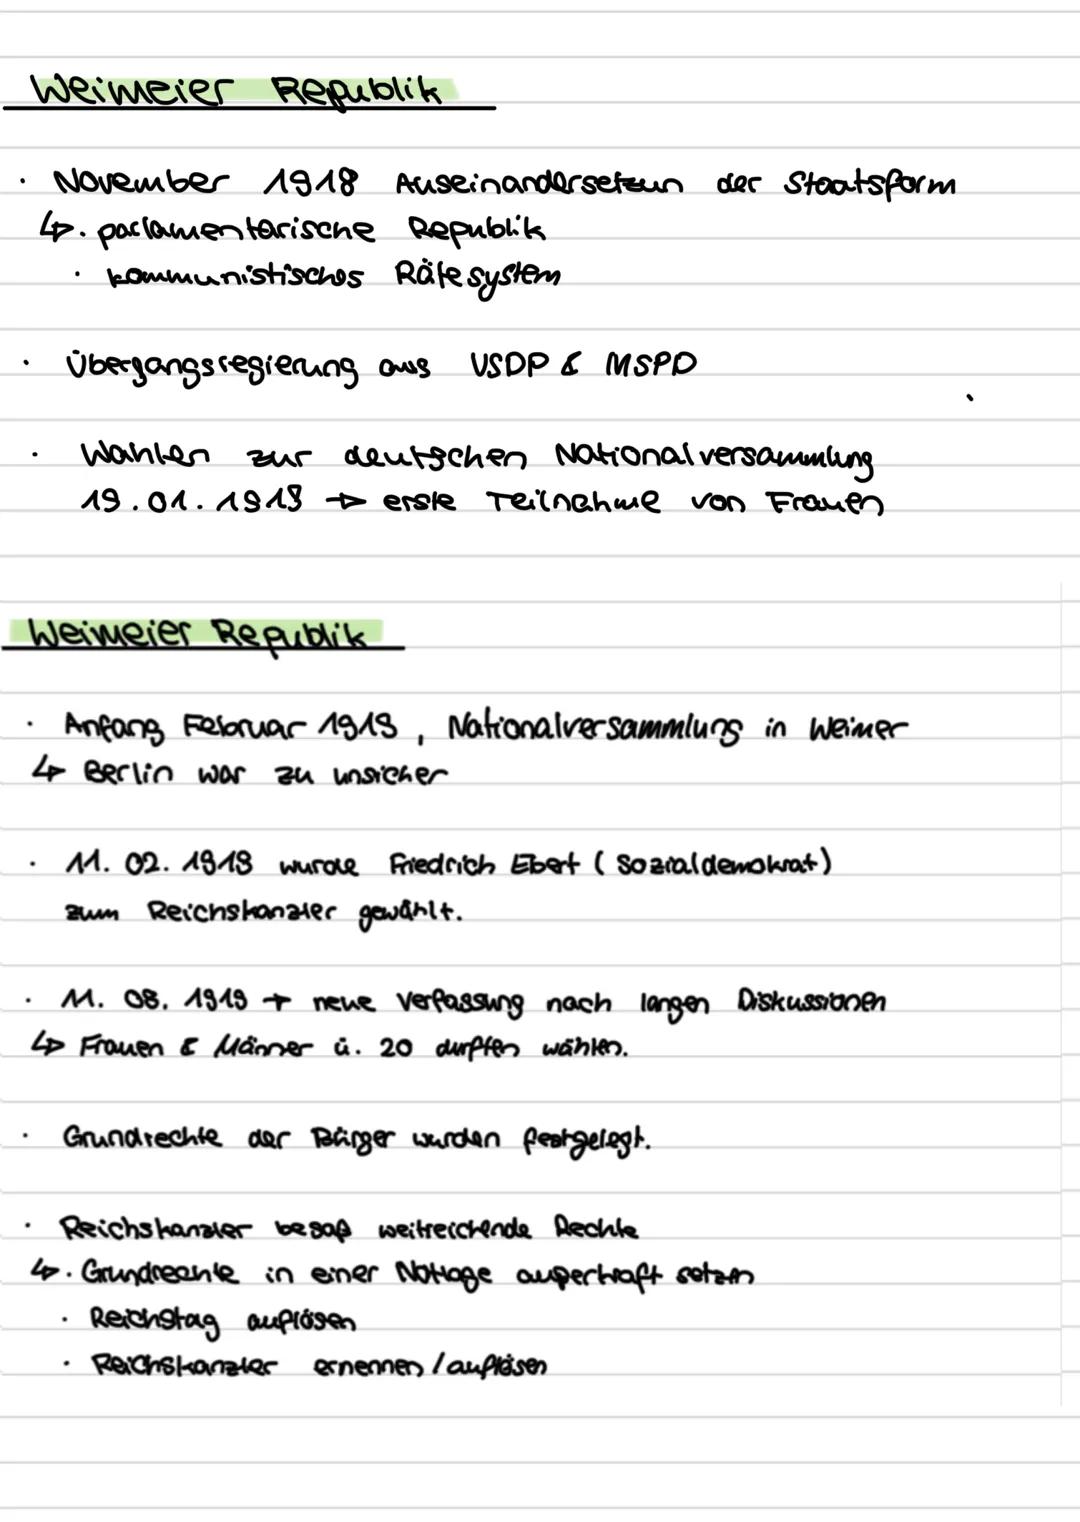 Weimeier Republik
· November 1918 Auseinandersetzun der Staatsform
↳ · parlamentarische Republik
· kommunistisches Rätesystem
· Übergangsregierung aus USDP & MSPD
· Wahlen zur deutschen Nationalversammlung
19.01.1919 → erste Teilnahme von Frauen
Weimeier Republik
· Anfang Februar 1919, Nationalversammlung in Weimer
↳ Berlin war zu unsicher
· 11.02.1919 wurde Friedrich Ebert (Sozialdemokrat)
zum Reichskanzler gewählt.
· 11.08.1919 → neue Verfassung nach langen Diskussionen
↳ Frauen & Männer ü. 20 durften wählen.
· Grundrechte der Bürger wurden festgelegt.
· Reichskanzler besaß weitreichende Rechte
↳ · Grundrechte in einer Notlage außerkraft setzen
· Reichstag auflösen
· Reichskanzler ernennen / auflösen